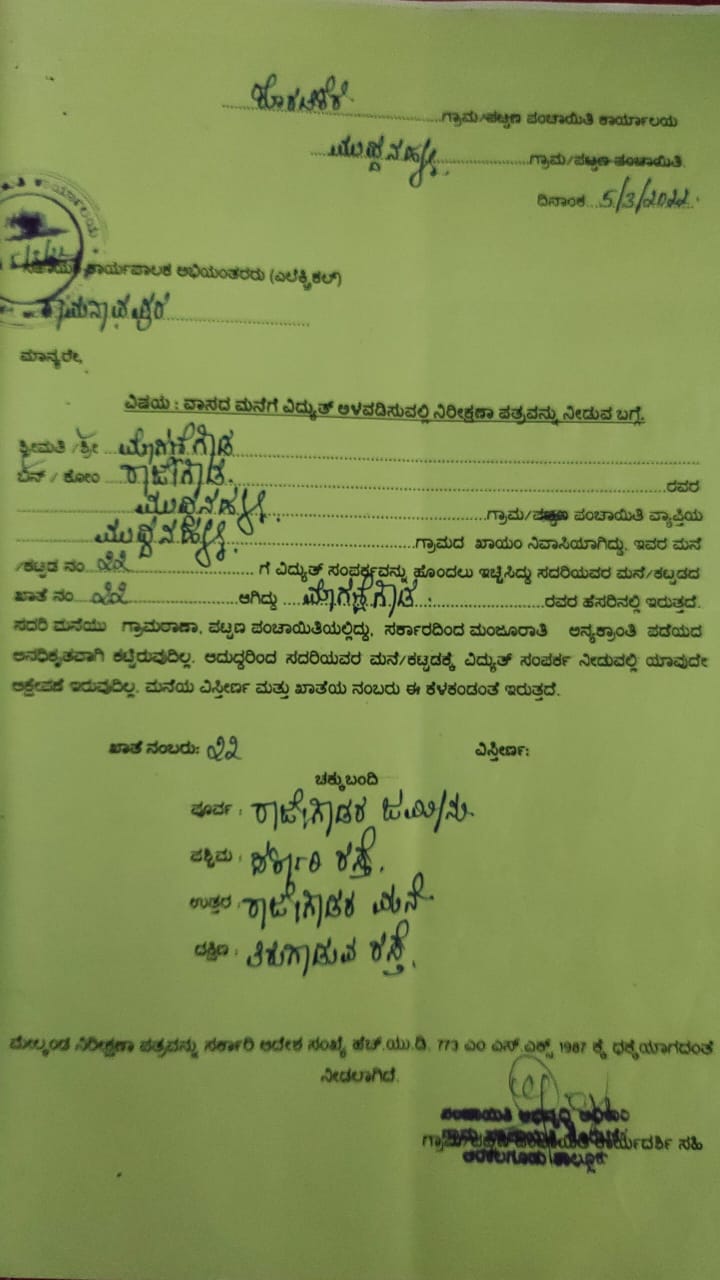 ಗ್ರಾಮ/ಪಟ್ಟಣ ಪಂಚಾಯಿತಿ ಕಾರ್ಯಾಲಯ
ಮುದ್ದನಹಳ್ಳಿ ಗ್ರಾಮ/ಪಟ್ಟಣ ಪಂಚಾಯಿತಿ.
ದಿನಾಂಕ 5/3/2022
ಸಹಾಯಕ ಕಾರ್ಯಪಾಲಕ ಅಭಿಯಂತರರು (ಎಲೆಕ್ಟ್ರಿಕಲ್)
ರಾಮನಾಥಪುರ
ಮಾನ್ಯರೇ,
ವಿಷಯ : ವಾಸದ ಮನೆಗೆ ವಿದ್ಯುತ್ ಅಳವಡಿಸುವಲ್ಲಿ ನಿರೀಕ್ಷಣಾ ಪತ್ರವನ್ನು ನೀಡುವ ಬಗ್ಗೆ.
ಶ್ರೀಮತಿ / ಶ್ರೀ
ಬಿನ್ / ಕೋಂ ರಾಜೇಗೌಡ. ರವರ
ಮುದ್ದನಹಳ್ಳಿ. ಗ್ರಾಮ/ಪಟ್ಟಣ ಪಂಚಾಯಿತಿ ವ್ಯಾಪ್ತಿಯ
ಮುದ್ದನಹಳ್ಳಿ. ಗ್ರಾಮದ ಖಾಯಂ ನಿವಾಸಿಯಾಗಿದ್ದು, ಇವರ ಮನೆ
/ಕಟ್ಟಡ ನಂ ೨೨ ಗೆ ವಿದ್ಯುತ್ ಸಂಪರ್ಕವನ್ನು ಹೊಂದಲು ಇಚ್ಛಿಸಿದ್ದು ಸದರಿಯವರ ಮನೆ/ಕಟ್ಟಡದ
ಖಾತೆ ನಂ ೨೨ ಆಗಿದ್ದು ರವರ ಹೆಸರಿನಲ್ಲಿ ಇರುತ್ತದೆ.
ಸದರಿ ಮನೆಯು ಗ್ರಾಮಠಾಣಾ, ಪಟ್ಟಣ ಪಂಚಾಯಿತಿಯಲ್ಲಿದ್ದು, ಸರ್ಕಾರದಿಂದ ಮಂಜೂರಾತಿ ಅನ್ಯಕ್ರಾಂತಿ ಪಡೆಯದ
ಅನಧಿಕೃತವಾಗಿ ಕಟ್ಟಿರುವುದಿಲ್ಲ. ಆದುದ್ದರಿಂದ ಸದರಿಯವರ ಮನೆ/ಕಟ್ಟಡಕ್ಕೆ ವಿದ್ಯುತ್ ಸಂಪರ್ಕ ನೀಡುವಲ್ಲಿ ಯಾವುದೇ
ಆಕ್ಷೇಪಣೆ ಇರುವುದಿಲ್ಲ. ಮನೆಯ ವಿಸ್ತೀರ್ಣ ಮತ್ತು ಖಾತೆಯ ನಂಬರು ಈ ಕೆಳಕಂಡಂತೆ ಇರುತ್ತದೆ.
ಖಾತೆ ನಂಬರು: ೨೨ ವಿಸ್ತೀರ್ಣ:
ಚಕ್ಕುಬಂದಿ
ಪೂರ್ವ : ರಾಜೇಗೌಡರ ಜಮೀನು.
ಪಶ್ಚಿಮ : ರಸ್ತೆ.
ಉತ್ತರ : ರಾಜೇಗೌಡರ ಮನೆ
ದಕ್ಷಿಣ : ತಿರುಗಾಡುವ ರಸ್ತೆ.
ಮೇಲ್ಕಂಡ ನಿರೀಕ್ಷಣಾ ಪತ್ರವನ್ನು ಸರ್ಕಾರಿ ಆದೇಶ ಸಂಖ್ಯೆ ಹೆಚ್.ಯು.ಡಿ. 773 ಎಂ ಎಸ್.ಎಕ್ಸ್ 1987 ಕ್ಕೆ ಧಕ್ಕೆಯಾಗದಂತೆ
ನೀಡಲಾಗಿದೆ.
ಪಂಚಾಯಿತಿ ಅಭಿವೃದ್ಧಿ ಅಧಿಕಾರಿ
ಗ್ರಾಮ/ಪಟ್ಟಣ ಪಂಚಾಯಿತಿ ಕಾರ್ಯದರ್ಶಿ ಸಹಿ
ಅರಕಲಗೂಡು ತಾಲ್ಲೂಕು